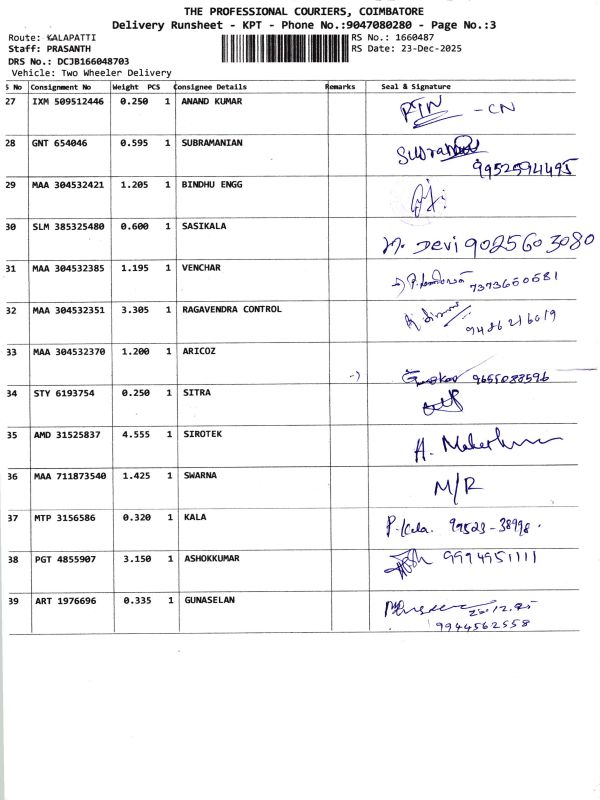 THE PROFESSIONAL COURIERS, COIMBATORE
Delivery Runsheet - KPT - Phone No.:9047080280 - Page No.:3
Route: KALAPATTI RS No.: 1660487
Staff: PRASANTH RS Date: 23-Dec-2025
DRS No.: DCJB166048703
Vehicle: Two Wheeler Delivery
S No Consignment No Weight PCS Consignee Details Remarks Seal & Signature
27 IXM 509512446 0.250 1 ANAND KUMAR RTN - CN
28 GNT 654046 0.595 1 SUBRAMANIAN
9952594495
29 MAA 304532421 1.205 1 BINDHU ENGG
30 SLM 385325480 0.600 1 SASIKALA
M. Devi 9025603080
31 MAA 304532385 1.195 1 VENCHAR
7373660681
32 MAA 304532351 3.305 1 RAGAVENDRA CONTROL
9486216019
33 MAA 304532370 1.200 1 ARICOZ
9655088596
34 STY 6193754 0.250 1 SITRA
35 AMD 31525837 4.555 1 SIROTEK
36 MAA 711873540 1.425 1 SWARNA M/R
37 MTP 3156586 0.320 1 KALA
P. Kala. 99523-38998.
38 PGT 4855907 3.150 1 ASHOKKUMAR 9994951111
39 ART 1976696 0.335 1 GUNASELAN
9944562558